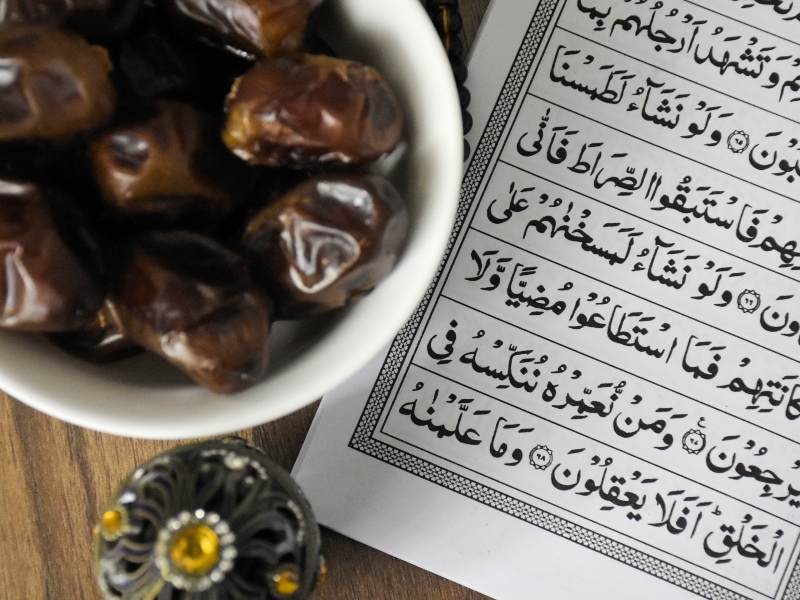 وَتَشْهَدُ اَرْجُلُهُمْ بِمَا
وَلَوْ نَشَآءُ لَطَمَسْنَا
فَاسْتَبَقُوا الصِّرَاطَ فَاَنّٰى
وَلَوْ نَشَآءُ لَمَسَخْنٰهُمْ عَلٰى
مَكَانَتِهِمْ فَمَا اسْتَطَاعُوْا مُضِيًّا وَّلَا
يَرْجِعُوْنَ ۝٦٧ وَمَنْ نُّعَمِّرْهُ نُنَكِّسْهُ فِى
الْخَلْقِ ؕ اَفَلَا يَعْقِلُوْنَ ۝٦٨ وَمَا عَلَّمْنٰهُ